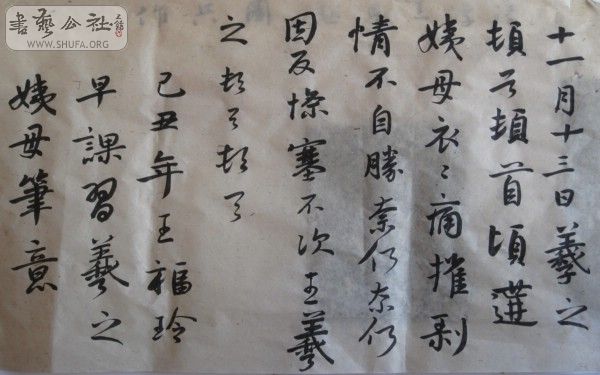 十一月十三日羲之
頓首頓首頃遘
姨母哀〻痛摧剥
情不自勝奈何奈何
因反慘塞不次王羲
之頓首頓首
己丑年王福玲
早課習羲之
姨母筆意
書藝公社
WWW.SHUFA.ORG